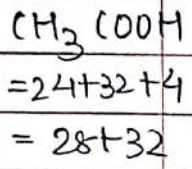 CH₃ COOH
=24+32+4
= 28+32